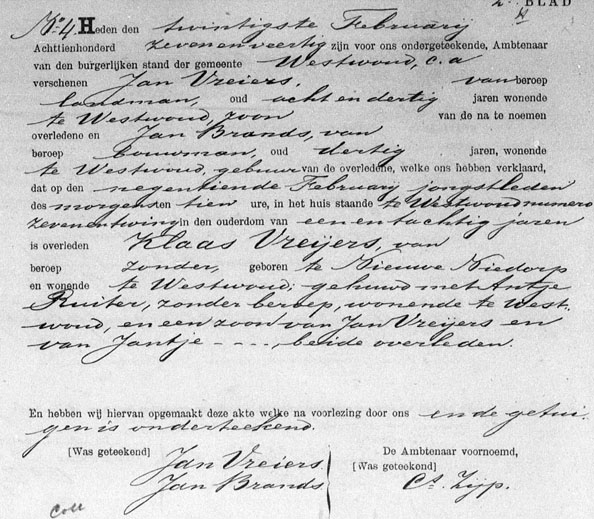 2e BLAD
No 4. Heden den twintigste Februarij
Achttienhonderd zevenenveertig zijn voor ons ondergeteekende, Ambtenaar
van den burgerlijken stand der gemeente Westwoud, c.a
verschenen Jan Vreiers, van beroep
landman, oud acht en dertig jaren wonende
te Westwoud, zoon van de na te noemen
overledene en Jan Brands, van
beroep bouwman, oud dertig jaren, wonende
te Westwoud, gebuur van de overledene, welke ons hebben verklaard,
dat op den negentiende Februarij jongstleden
des morgens ten tien ure, in het huis staande te Westwoud numero
zevenentwing in den ouderdom van een en tachtig jaren
is overleden Klaas Vreijers, van
beroep zonder, geboren te Nieuwe Niedorp
en wonende te Westwoud; gehuwd met Antje
Ruiter, zonder beroep, wonende te West-
woud, en een zoon van Jan Vreijers en
van Jantje - - - -, beide overleden.
En hebben wij hiervan opgemaakt deze akte welke na voorlezing door ons en de getui-
gen is onderteekend.
[Was geteekend] Jan Vreiers
Jan Brands
De Ambtenaar voornoemd,
[Was geteekend] Ct. Zijp.
Coll